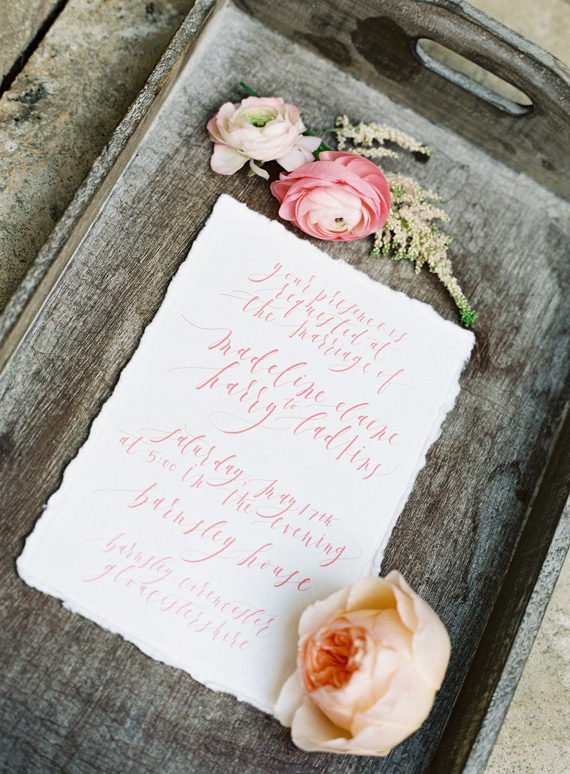 your presence is
requested at
the marriage of
madeline elaine
to
harry ladkins
saturday, may 17th
at 5:00 in the evening
barnsley house
barnsley, cirencester
gloucestershire